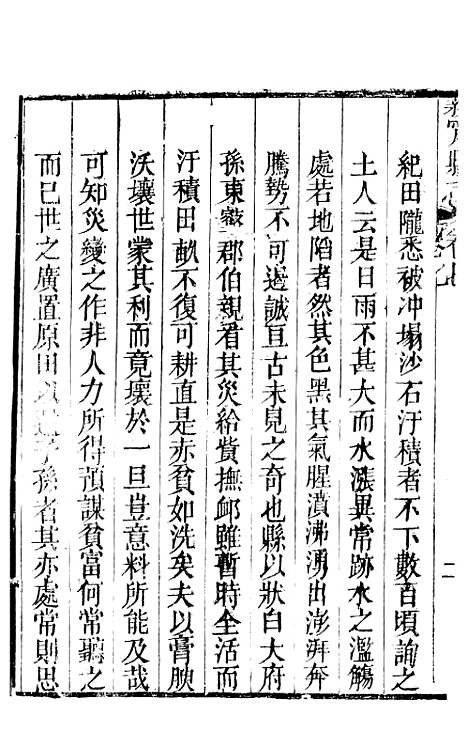 紀田隴悉被冲塌沙石汙積者不下數百頃詢之
土人云是日雨不甚大而水漲異常跡水之濫觴
處若地陷者然其色黑其氣腥濆沸湧出澎湃奔
騰勢不可遏誠亘古未見之奇也縣以狀白大府
孫東𡼖郡伯親看其災給貲撫䘏雖暫時全活而
汙積田畝不復可耕直是赤貧如洗矣夫以膏腴
沃壤世蒙其利而竟壞於一旦豈意料所能及哉
可知災變之作非人力所得預謀貧富何常聽之
而已世之廣置原田以遺子孫者其亦處常則思